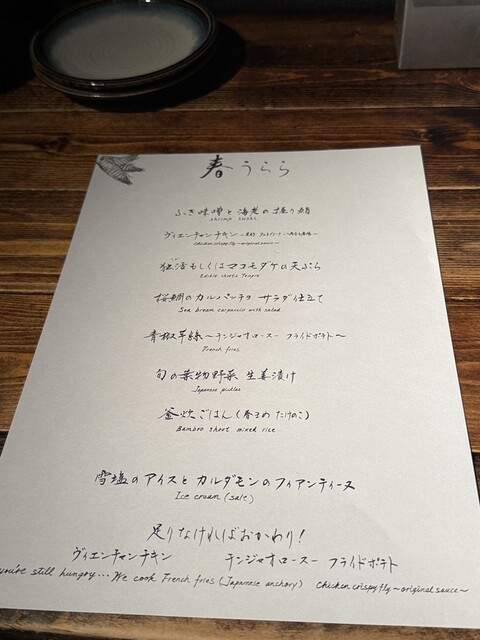 春うらら
ふき味噌と海老の握り鮨
shrimp sushi
ヴィエンチャンチキン
chicken crispy fly ~original sauce~
独活もしくはマコモダケの天ぷら
Edible shoots Tenpra
桜鯛のカルパッチョ サラダ仕立て
Sea bream carpaccio with salad
青椒羊絲〜チンジャオロースー フライドポテト〜
French fries
旬の葉物野菜 生姜漬け
Japanese pickles
釜炊ごはん(春まめ たけのこ)
Bamboo shoot mixed rice
雪塩のアイスとカルダモンのフィアンティーヌ
Ice cream (sale)
足りなければおかわり!
ヴィエンチャンチキン チンジャオロースー フライドポテト
you're still hungry... We cook French fries (Japanese anchovy) chicken crispy fly ~original sauce~